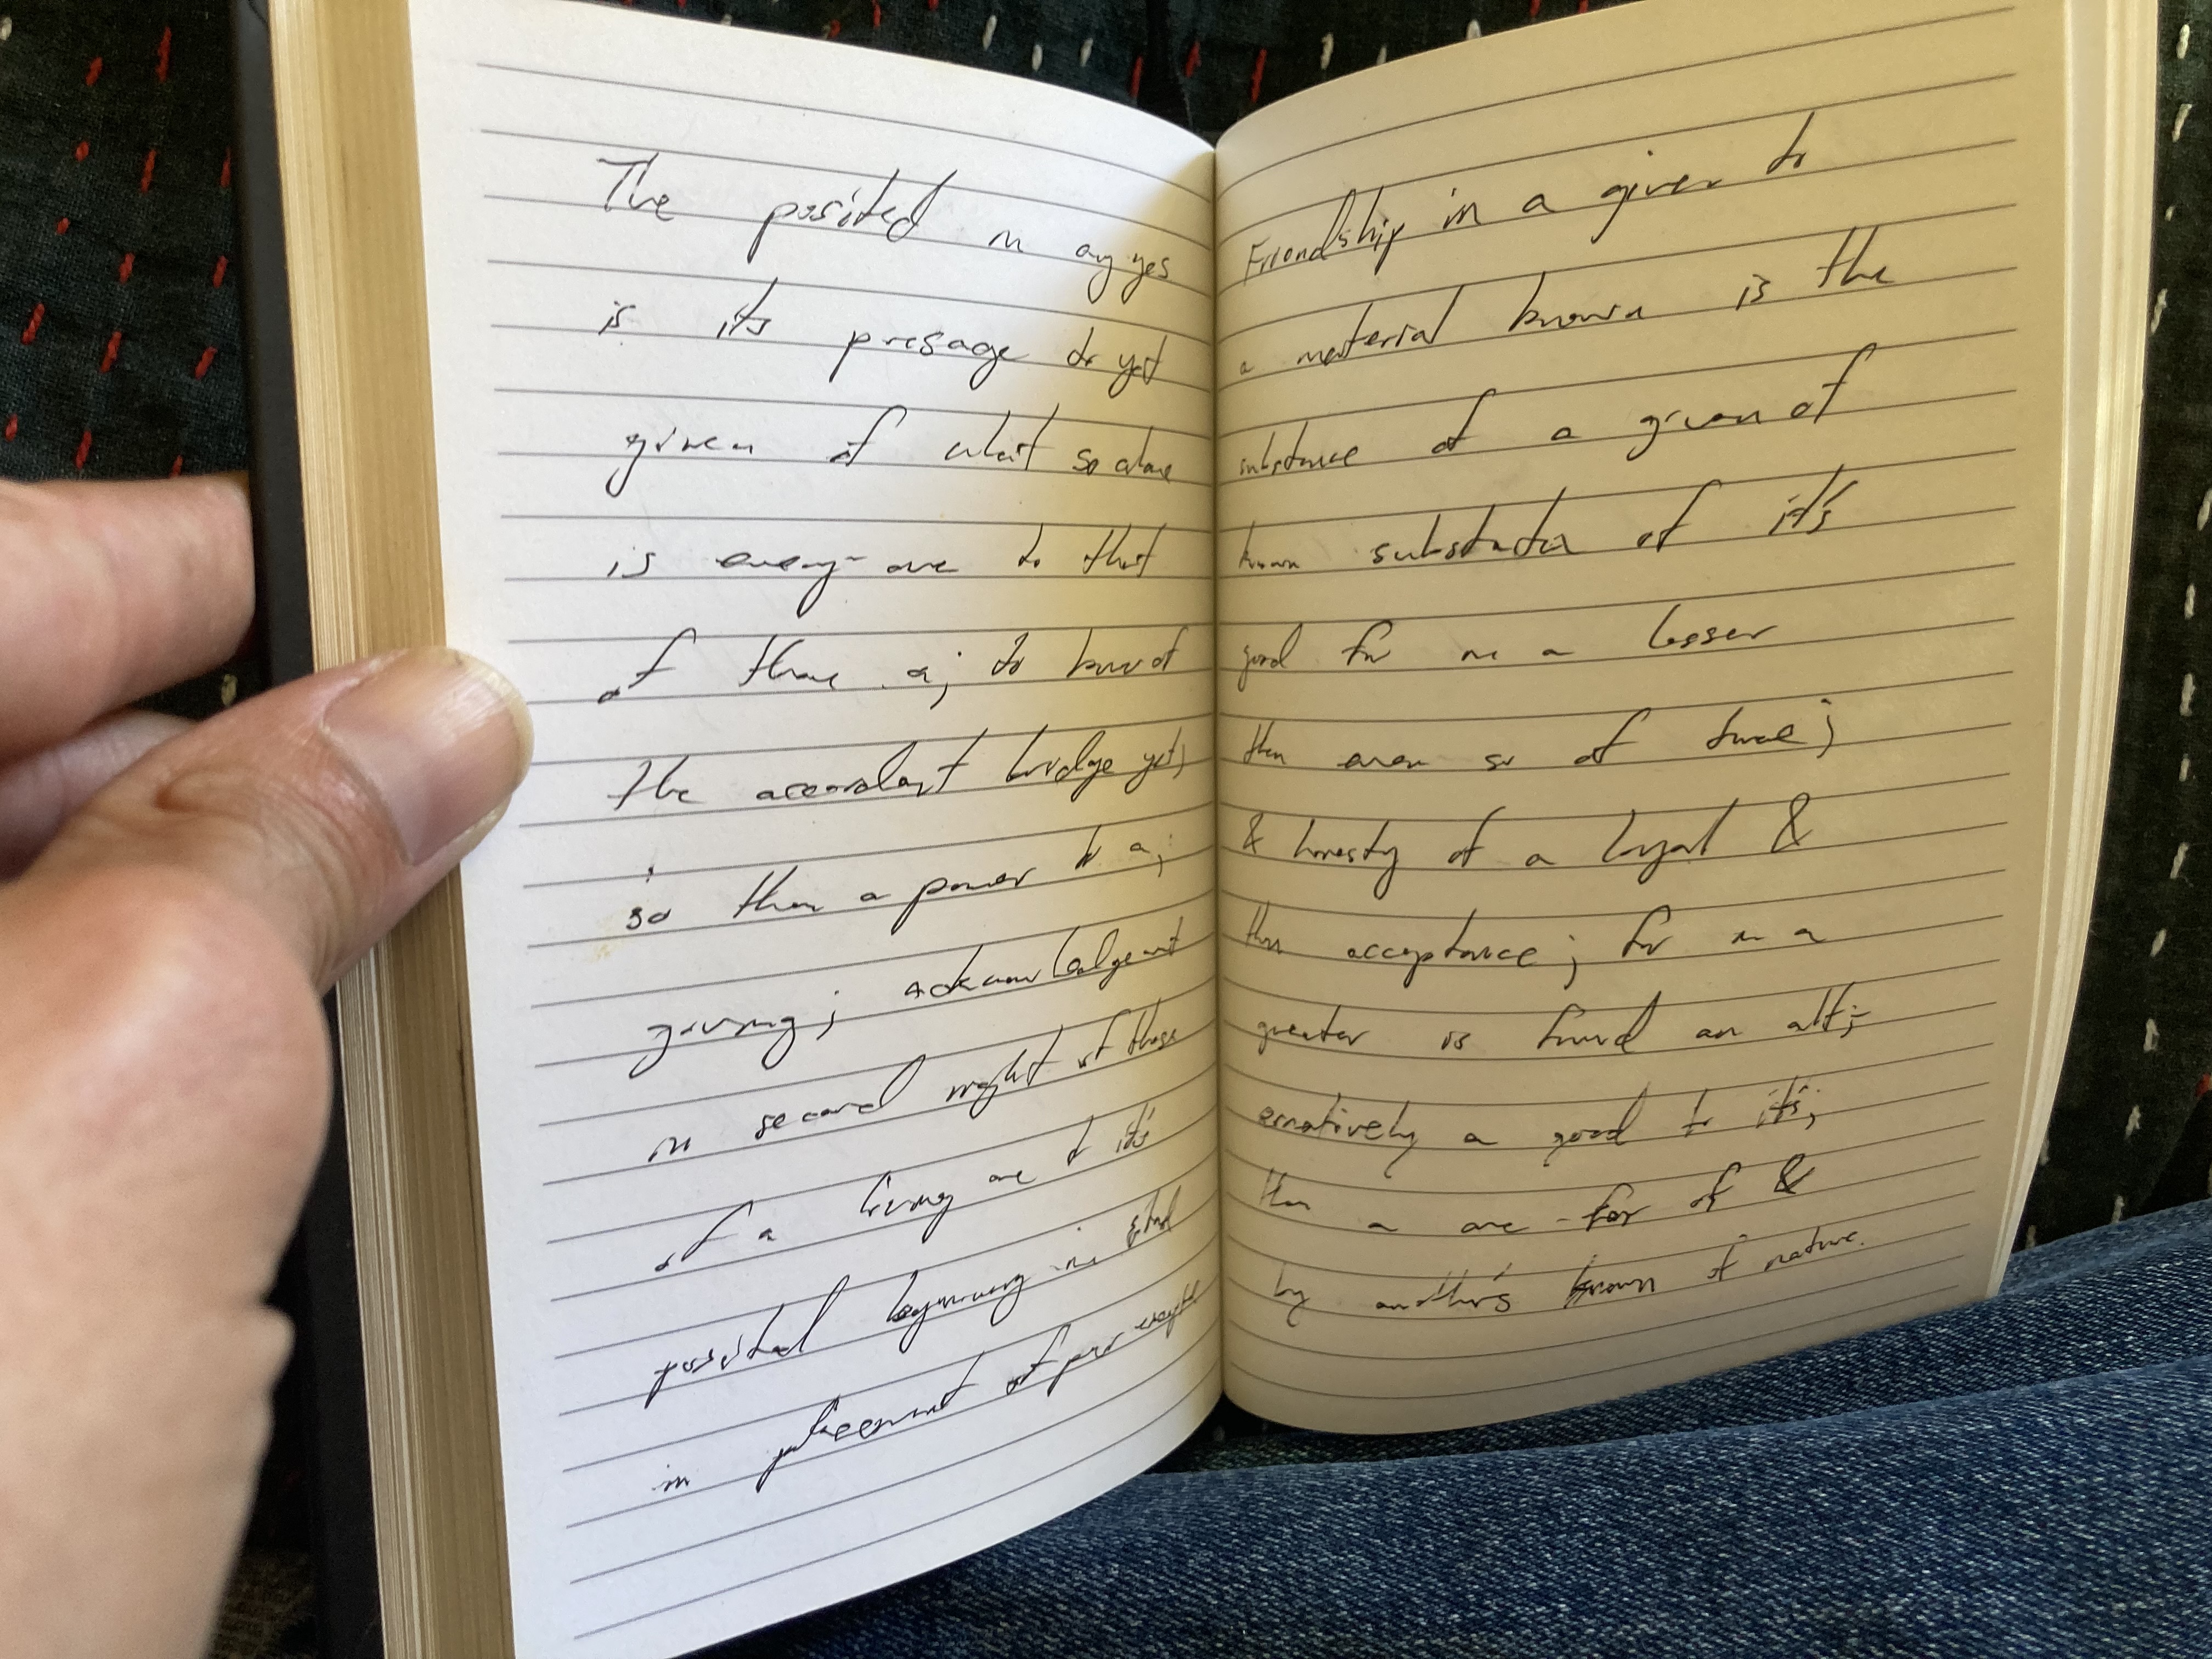 The posited in any yes
is its presage to yet
given of what so alone
is every-one to that
of those a; to know of
the accordant bridge yet;
so then a power to a;
giving; acknowledgement
in second might of those
of a living one to it's
posited beginning in
in placement of per
Friendship in a given to
a material known is the
substance of a given of
known substance of it's
good for in a lesser
then even so of twice;
& honesty of a loyal &
then acceptance; for in a
greater is found an alt;-
ernatively a good to it's;
then a one-for of &
by another's known of nature.